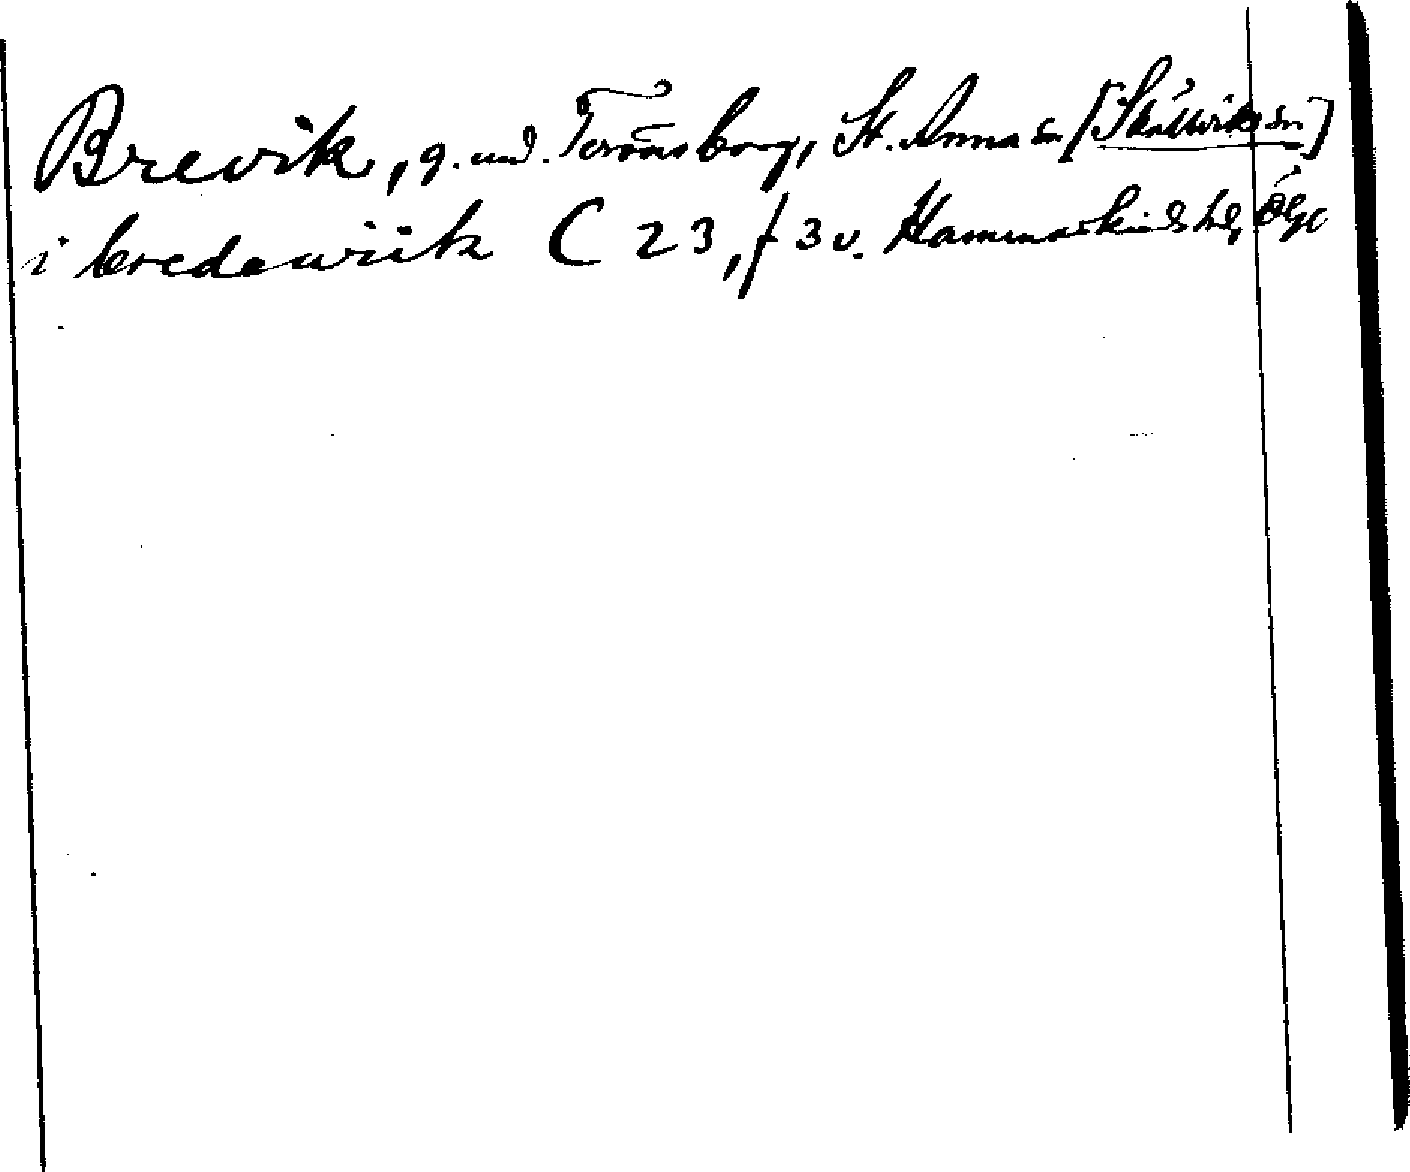 Brevik, g. und. Torönsborg, St. Anna sn [Skällviks sn]
i bredawiik C 23, f 3 v. Hammarkinds hd, Ögl